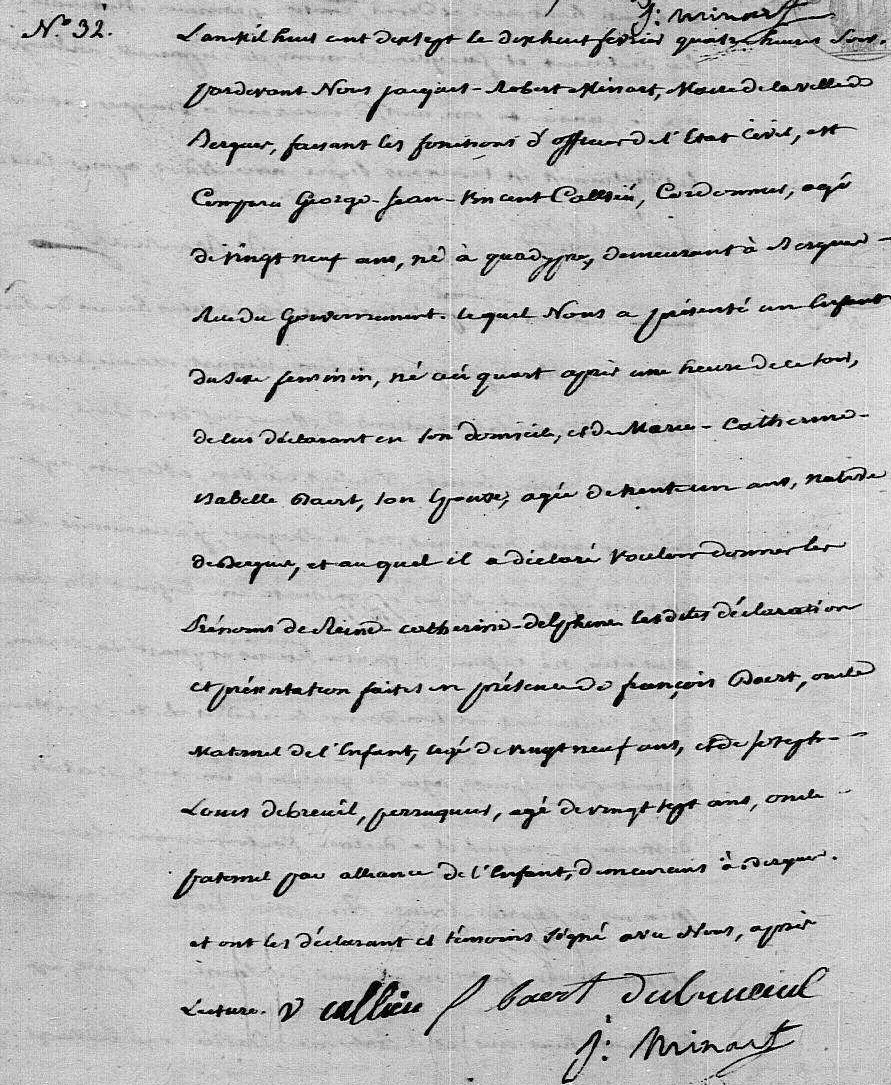 J: Minart
N.º 32.
L'an mil huit cent dix sept le dix huit fevrier quatre heures Soir,
pardevant Nous Jacques-Robert Minart, Maire de la ville de
Bergues, faisant les fonctions d'officier de l'Etat Civil, est
Comparu George-Jean-Vincent Callieu, Cordonnier, agé
de vingt neuf ans, né à quadypre, demeurant à Bergues-
Rue du Gouvernement. lequel Nous a présenté un Enfant
du sexe feminin, né au quart après une heure de ce soir,
de lui déclarant en son domicile, et de Marie-Catherine-
Isabelle Baert, son Epouse, agée de trente un ans, native
de Bergues, et auquel il a déclaré vouloir donner les
Prénoms de Reine-catherine-delphine lesdites déclaration
et présentation faites en présence de françois Baert, oncle
Maternel de l'Enfant, agé de vingt neuf ans, et de joseph-
Louis debreuil, perruquier, agé de vingt sept ans, oncle
paternel par alliance de l'Enfant, demeurans à Bergues.
et ont les déclarant et témoins signé avec Nous, après
Lecture. v callieu f baert dubrueuil
J: Minart